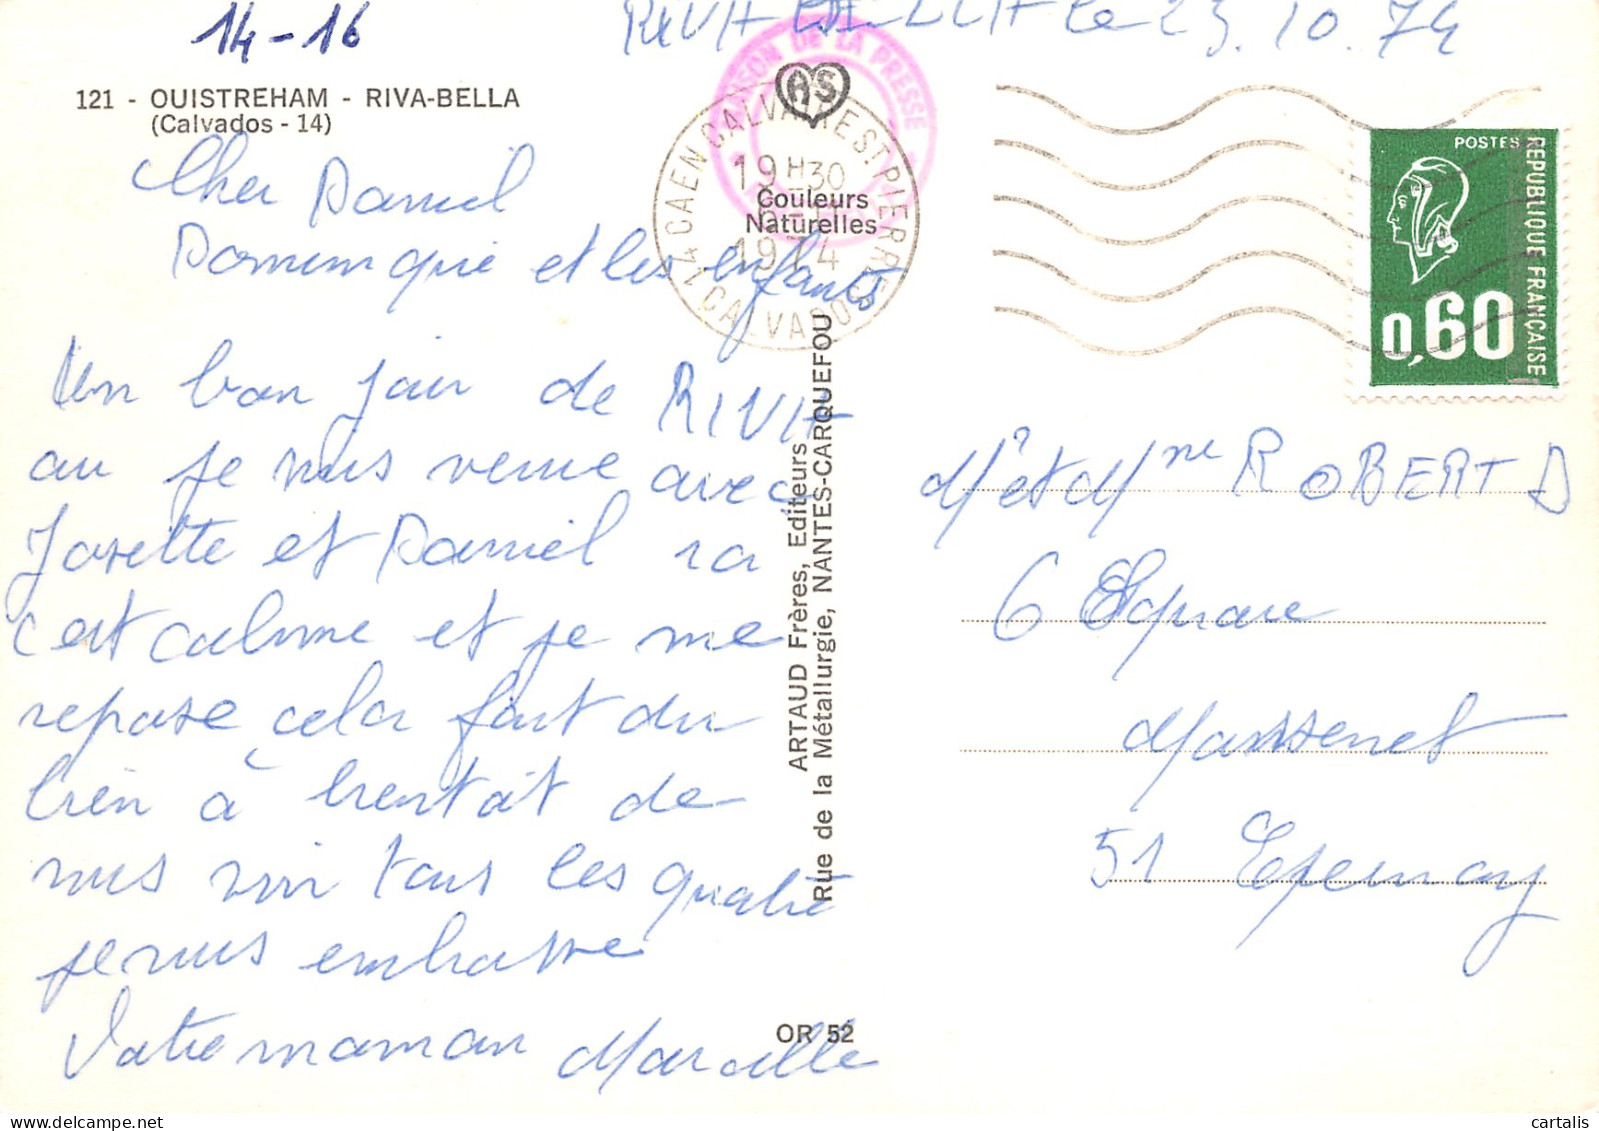 14-16
RIVA BELLA le 23.10.74
121 - OUISTREHAM - RIVA-BELLA
(Calvados - 14)
Cher Daniel
Dominique et les enfants
Un bon jour de RIVA
au je suis venue avec
Josette et Daniel ici
c'est calme et je me
repose cela fait du
bien à bientôt de
vous voir tous les quatre
je vous embrasse
Votre maman Marcelle
MAISON DE LA PRESSE
AS
Couleurs
Naturelles
14 CAEN CALVAIRE ST. PIERRE
19H30
1974
14 CALVADOS
ARTAUD Frères, Editeurs
Rue de la Métallurgie, NANTES-CARQUEFOU
OR 52
POSTES
REPUBLIQUE FRANÇAISE
0,60
Mr et Mme ROBERT D
6 Square
Massenet
51 Epernay
cartalis